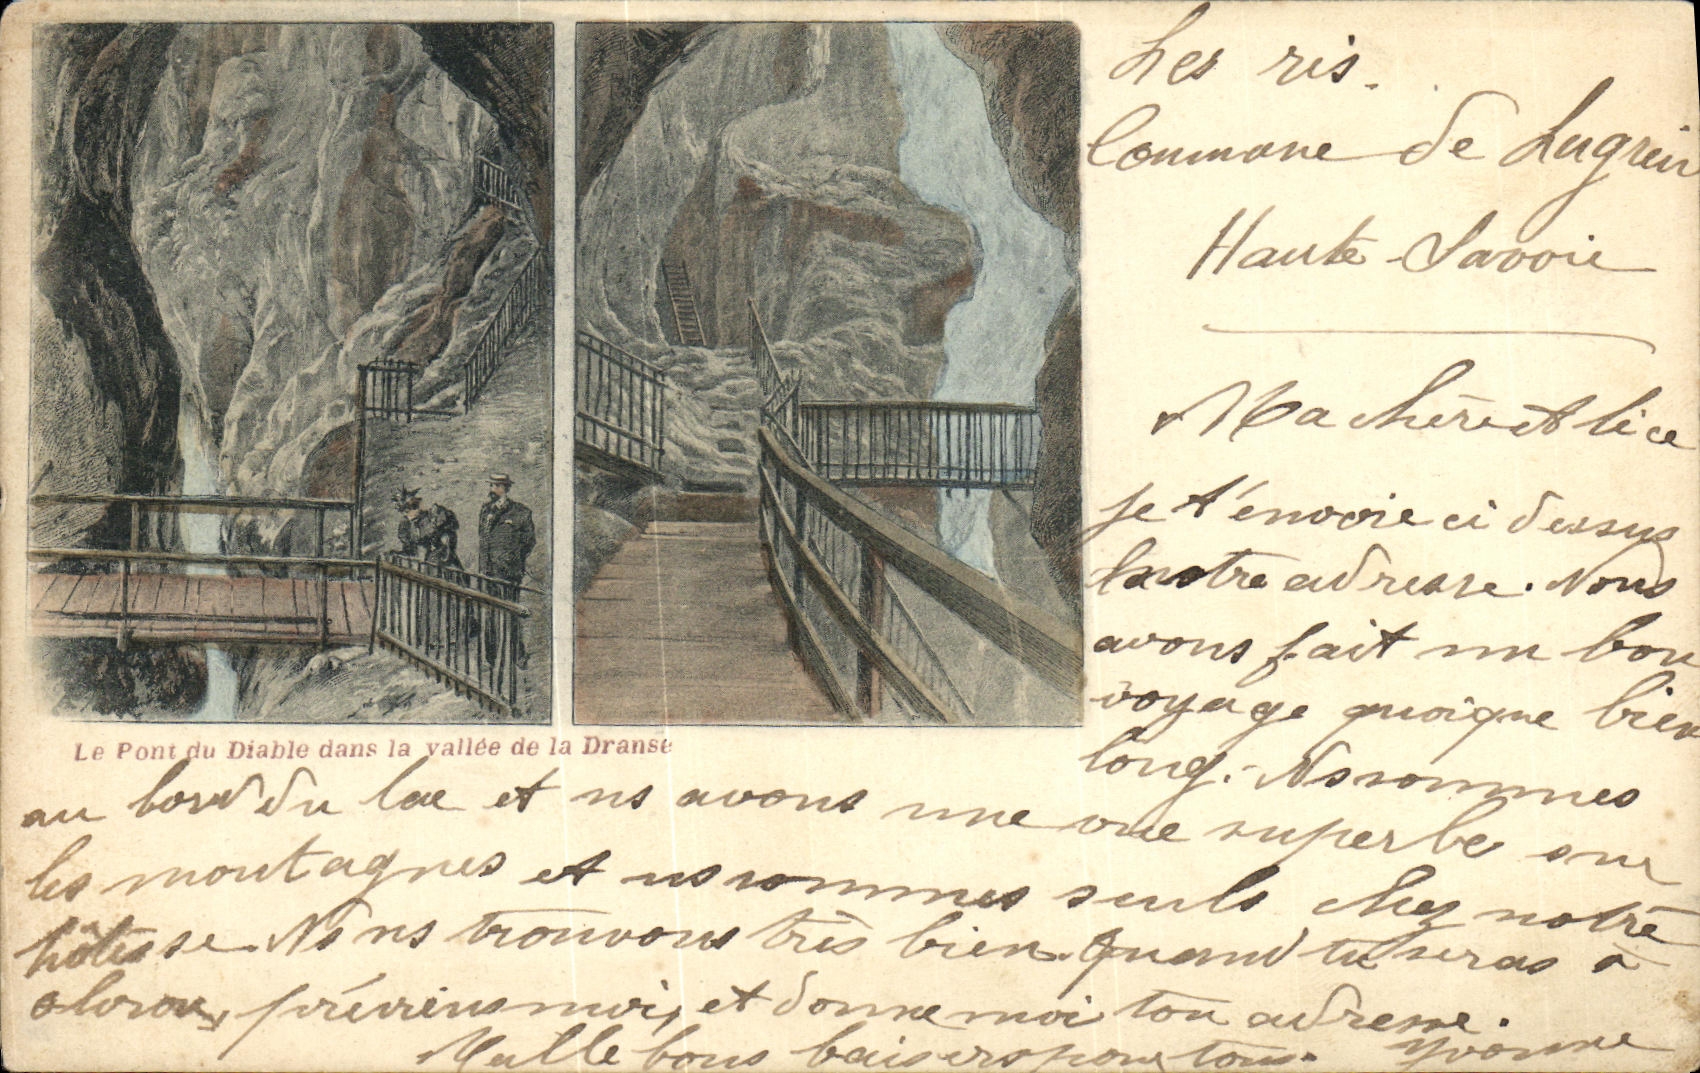 Les ris.
Commune de Lugrin
Haute-Savoie
Ma chère Alice
je t'énvoie ci dessus
notre adresse. Nous
avons fait un bon
voyage quoique bien
long. Ns sommes
Le Pont du Diable dans la vallée de la Dranse
au bord du lac et ns avons une vue superbe sur
les montagnes et ns sommes seuls chez notre
hôtesse. Ns ns trouvons très bien. Quand tu seras à
préviens moi, et donne moi ton adresse.
Mille bons baisers pour tous. Yvonne